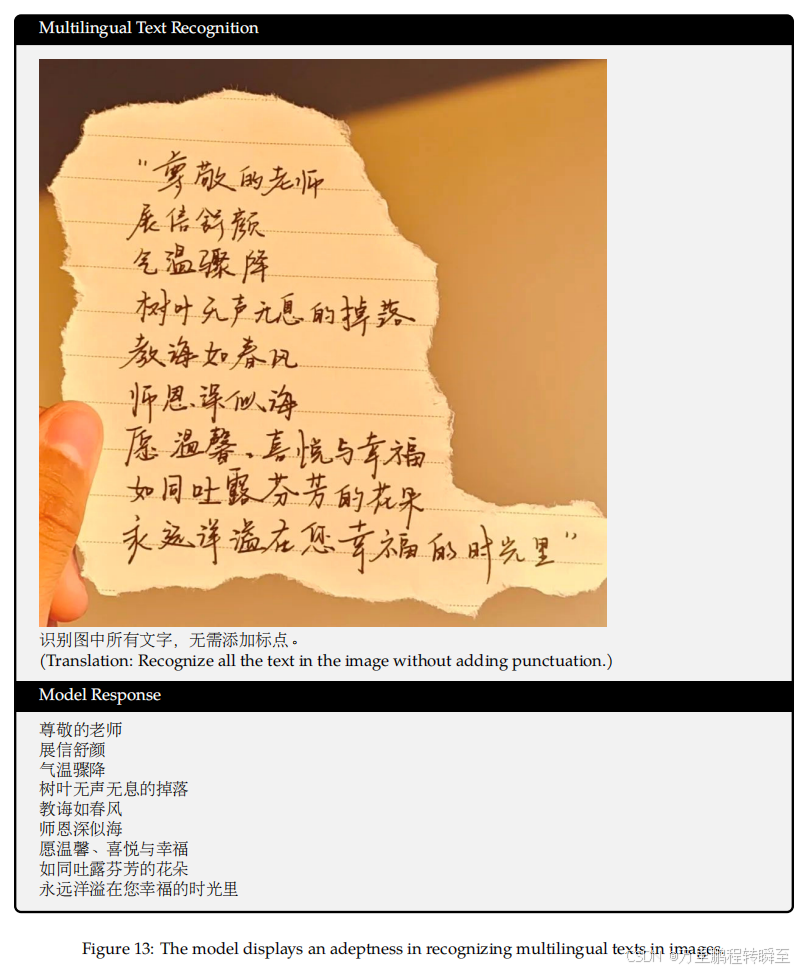 Multilingual Text Recognition
"尊敬的老师
展信舒颜
气温骤降
树叶无声无息的掉落
教诲如春风
师恩深似海
愿温馨、喜悦与幸福
如同吐露芬芳的花朵
永远洋溢在您幸福的时光里"
识别图中所有文字，无需添加标点。
(Translation: Recognize all the text in the image without adding punctuation.)
Model Response
尊敬的老师
展信舒颜
气温骤降
树叶无声无息的掉落
教诲如春风
师恩深似海
愿温馨、喜悦与幸福
如同吐露芬芳的花朵
永远洋溢在您幸福的时光里
Figure 13: The model displays an adeptness in recognizing multilingual texts in images.
CSDN @万里鹏程转瞬至